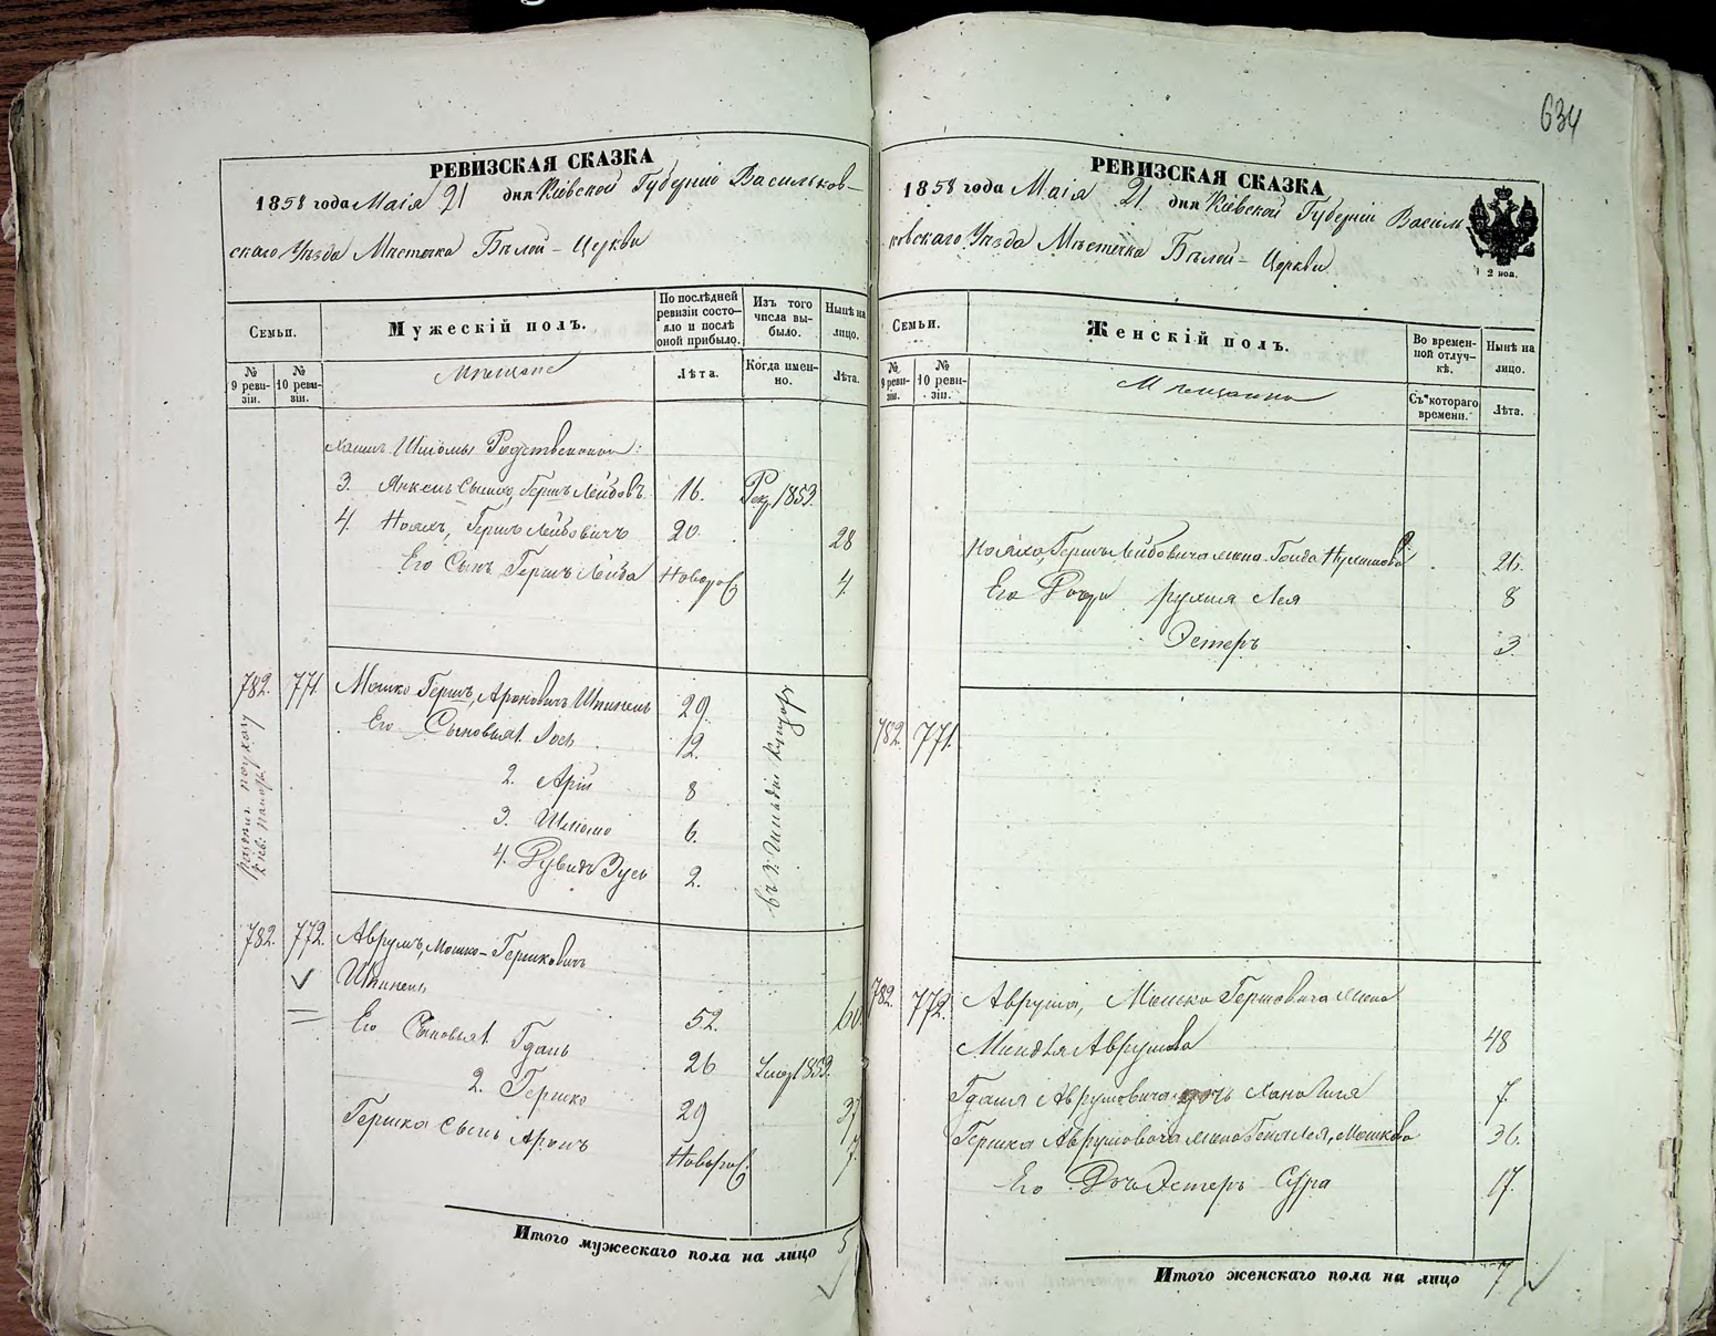 634
РЕВИЗСКАЯ СКАЗКА
1858 года Маія 21 дня Кіевской Губерніи Васильков-
скаго Уѣзда Мѣстечка Бѣлой-Церкви
Семьи.
Мужескій полъ.
По послѣдней ревизіи состо-яло и послѣ оной прибыло.
Изъ того числа вы-было.
Нынѣ на лицо.
№ 9 реви-зіи.
№ 10 реви-зіи.
Мѣщане
Лѣта.
Когда имен-но.
Лѣта.
Шліомы Родственники:
3. Янкель Гершъ Лейбовъ 16. Рек. 1853.
4. Гершъ Лейбовичъ 20. 28
Его Сынъ Гершъ Лейба Новорож. 4.
782. 771. Мошко Гершъ, Ароновичъ Шпинель 29.
Его Сыновья 1. Іось 12.
2. Арій 8
3. Шліомо 6.
4. Дувидъ Зусь 2.
782. 772. Аврумъ, Мошко-Гершковичъ
Шпинель 52. 60.
Его Сыновья 1. Гдаль 26 1853.
2. Гершко 29 37
Гершка Сынъ Аронъ Новорож. 7.
Итого мужескаго пола на лицо 5
РЕВИЗСКАЯ СКАЗКА
1858 года Маія 21 дня Кіевской Губерніи Василь
ковскаго Уѣзда Мѣстечка Бѣлой-Церкви
2 коп.
Семьи.
Женскій полъ.
Во времен-ной отлуч-кѣ.
Нынѣ на лицо.
№ 9 реви-зіи.
№ 10 реви-зіи.
Мѣщанки
Съ котораго времени.
Лѣта.
Гершъ Лейбовича жена Голда 26.
Его Дочери Рухля Лея 8
Эстеръ 3.
782. 771.
782. 772. Аврума, Мошко Гершовича жена
Миндля Аврумова 48
Гдаля Аврумовича дочь Хана 7.
Гершка Аврумовича жена Лея, Мошкова 36.
Его Дочь Эстеръ Сура 17.
Итого женскаго пола на лицо 7